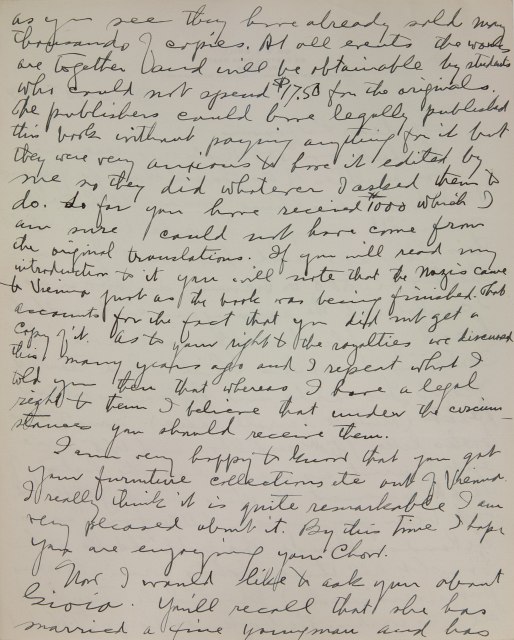 as you see they have already sold many
thousands of copies. At all events the works
are together and will be obtainable by students
who could not spend $17.50 for the originals.
The publishers could have legally published
this book without paying anything for it but
they were very anxious to have it edited by
me so they did whatever I asked them to
do. So far you have received $1000 which I
am sure could not have come from
the original translations. If you will read my
introduction to it you will note that the Nazis came
to Vienna just as the book was being finished. That
accounts for the fact that you did not get a
copy of it. As to your right to the royalties we discussed
this many years ago and I repeat what I
told you then that whereas I have a legal
right to them I believe that under the circum-
stances you should receive them.
I am very happy to know that you got
your furniture collections etc out of Vienna.
I really think it is quite remarkable I am
very pleased about it. By this time I hope
you are enjoying your Chow.
Now I would like to ask you about
Gioia. You'll recall that she has
married a fine young man and has